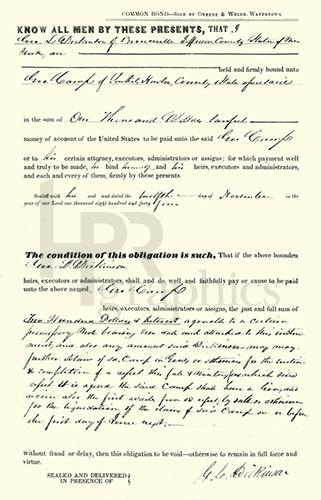 COMMON BOND—SOLD BY GREENE & WELCH, WATERTOWN.
KNOW ALL MEN BY THESE PRESENTS, THAT I
Geo. L. Dickinson of Jefferson County State of New
York, am
held and firmly bound unto
Geo. Camp of Sackets Harbor, County & State aforesaid
in the sum of One Thousand Dollars lawful
money of account of the United States to be paid unto the said Geo Camp
or his certain attorney, executors, administrators or assigns; for which payment well
and truly to be made, he bind himself and his heirs, executors and administrators,
and each and every of them, firmly by these presents.
Sealed with his seal and dated the twelfth day of November in the
year of our Lord one thousand eight hundred and forty four
LPR
Graphics
The condition of this obligation is such, That if the above bounden
Geo. L. Dickinson
heirs, executors or administrators, shall and do, well, and faithfully pay or cause to be paid
unto the above named Geo Camp
heirs, executors, administrators or assigns, the just and full sum of
Two Hundred Dollars & Interest, agreeable to a certain
promissory Note bearing even date and attached to this instru
ment, and also any amount said Dickinson may
further obtain of sd. Camp in Goods or otherwise for the
& completion of a this fall & Winter, on which said
it is agreed the said Camp shall have a lien, and
receive also the first avails from sd by sale or otherwise
for the liquidation of the claim of said Camp on or before
the first day of June next;
without fraud or delay, then this obligation to be void—otherwise to remain in full force and
virtue.
SEALED AND DELIVERED
IN PRESENCE OF
G. L. Dickinson